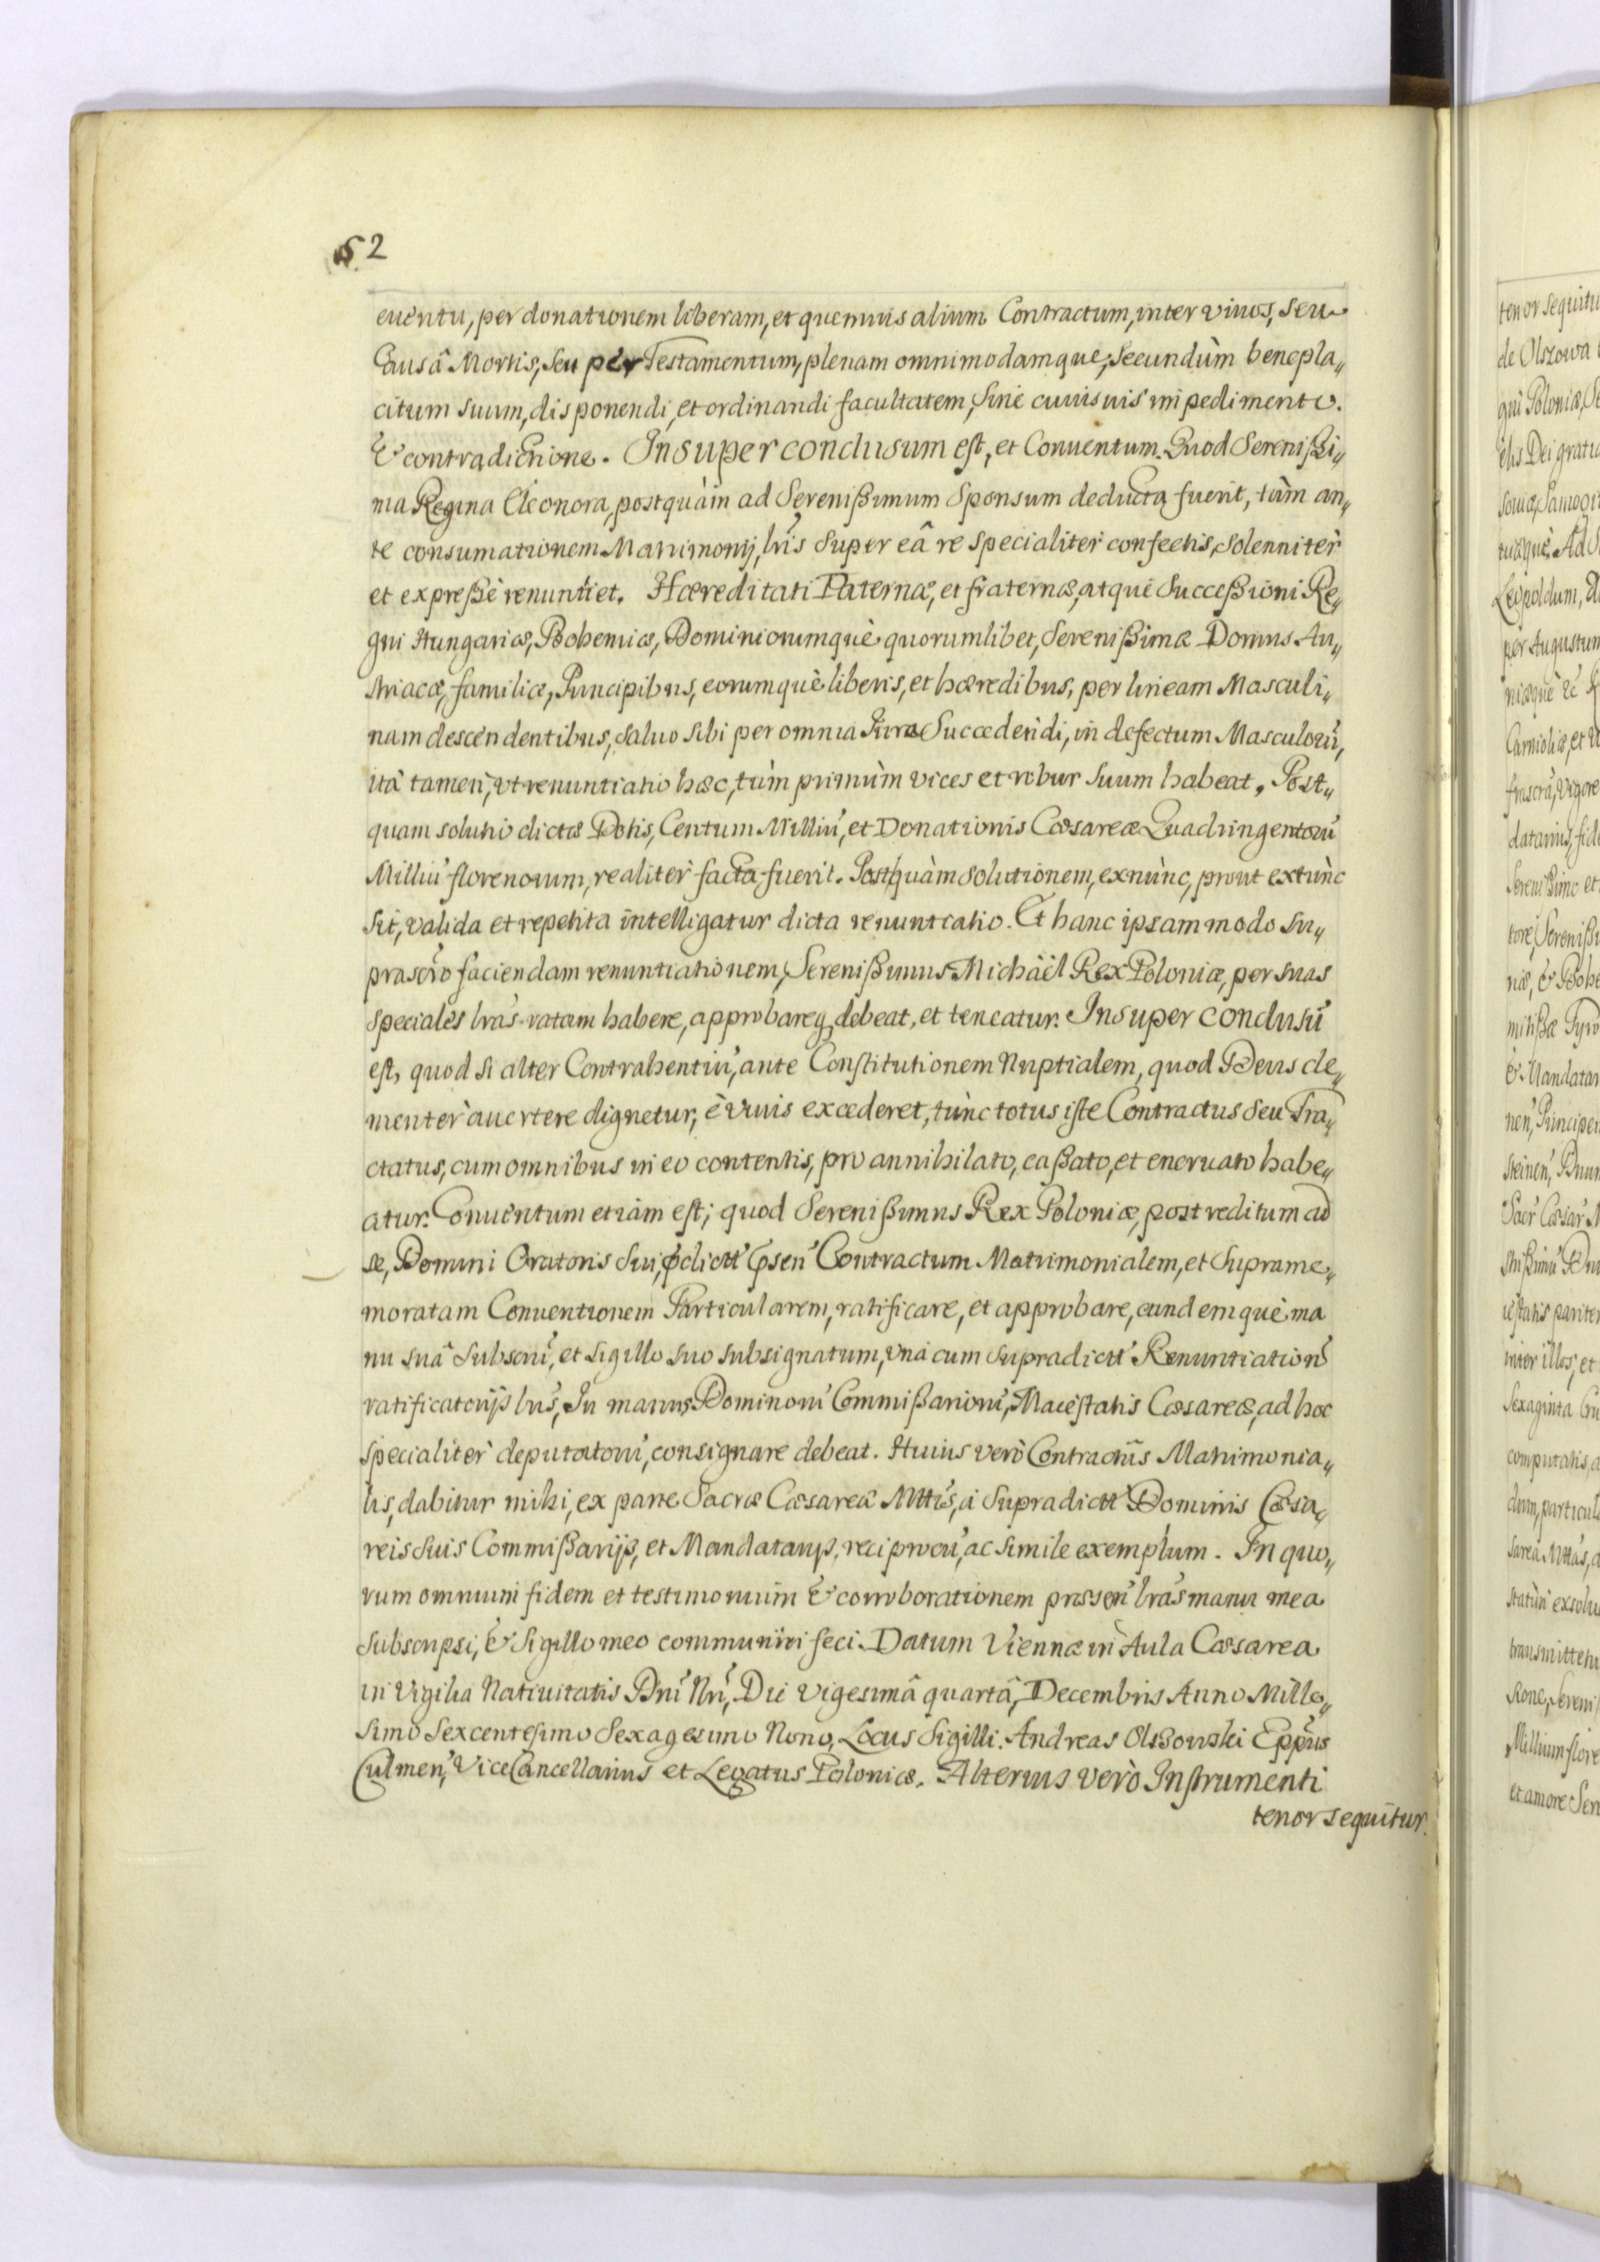 52
euentu, per donationem liberam, et quemuis alium Contractum, inter viuos, seu
Causâ Mortis, seu per Testamentum, plenam omnimodamque, secundùm benepla„
citum suum, disponendi, et ordinandi facultatem, sine cuiusuis impedimento.
& contradictione. Insuper conclusum est, et Conuentum. Quod Serenißi„
ma Regina Eleonora, postquàm ad Serenißimum Sponsum deducta fuerit, tàm an„
te consumationem Matrimonij, lrĩs super eâ re specialiter confectis, solenniter
et expreßè renuntiet. Hæreditati Paternæ, et fraternæ, atque Succeßioni Re„
gni Hungariæ, Bohemiæ, Dominiorumquè quorumlibet, Serenißimæ Domus Au„
striacæ, familiæ, Principibus, eorumquè liberis, et hæredibus, per lineam Masculi„
nam descendentibus, saluo sibi per omnia Iure Succedendi, in defectum Masculorũ,
ità tamen, vt renuntiatio hæc, tùm primùm vices et robur suum habeat, Post„
quam solutio dictæ Dotis, Centum Milliũ, et Donationis Cæsareæ Quadringentorũ
Milliũ florenorum, realitèr facta fuerit. Postquàm solutionem, exnùnc, prout extùnc
sit, valida et repetita intelligatur dicta renuntiatio. Et hanc ipsam modo su„
prascrõ faciendam renuntiationem, Serenißimus Michäel Rex Poloniæ, per suas
speciales lrãs ratam habere, approbareq debeat, et teneatur. Insuper conclusũ
est, quod si alter Contrahentiũ, ante Constitutionem Nuptialem, quod Deus cle„
menter auertere dignetur, è viuis excederet, tùnc totus iste Contractus seu Tra„
ctatus, cum omnibus in eo contentis, pro annihilato, caßato, et eneruato habe„
atur. Conuentum etiàm est; quod Serenißimus Rex Poloniæ, post reditum ad
se, Domini Oratoris sui, p̃dictũ p̃sen̄ Contractum Matrimonialem, et supramem„
moratam Conuentionem Particularem, ratificare, et approbare, eundemquè ma
nu suâ subscrĩ, et sigillo suo subsignatum, vnà cum supradictĩ Renuntiatioñ
ratificatorijs lrĩs, In manus Dominorũ Commißariorũ, Maiestatis Cæsareæ, ad hoc
specialiter deputatorũ, consignare debeat. Huius verò Contractũs Matrimonia„
lis, dabitur mihi, ex parte Sacræ Cæsareæ Mttĩs, à supradictĩ Dominis Cæsa„
reis suis Commißarijs, et Mandatarijs, reciprocũ, ac simile exemplum. In quo„
rum omnium fidem et testimonium & corroborationem præseñ lrãs manu mea
subscripsi, & Sigillo meo communiri feci. Datum Viennæ in Aula Cæsarea
in Vigilia Natiuitatis Dnĩ Nrĩ, Die vigesimâ quartâ, Decembris Anno Mille„
simo Sexcentesimo Sexagesimo Nono, Locus Sigilli. Andreas Olszowski Epp̃us
Culmen, Vice Cancellarius et Legatus Poloniæ. Alterius verò Instrumenti
tenor sequitur.